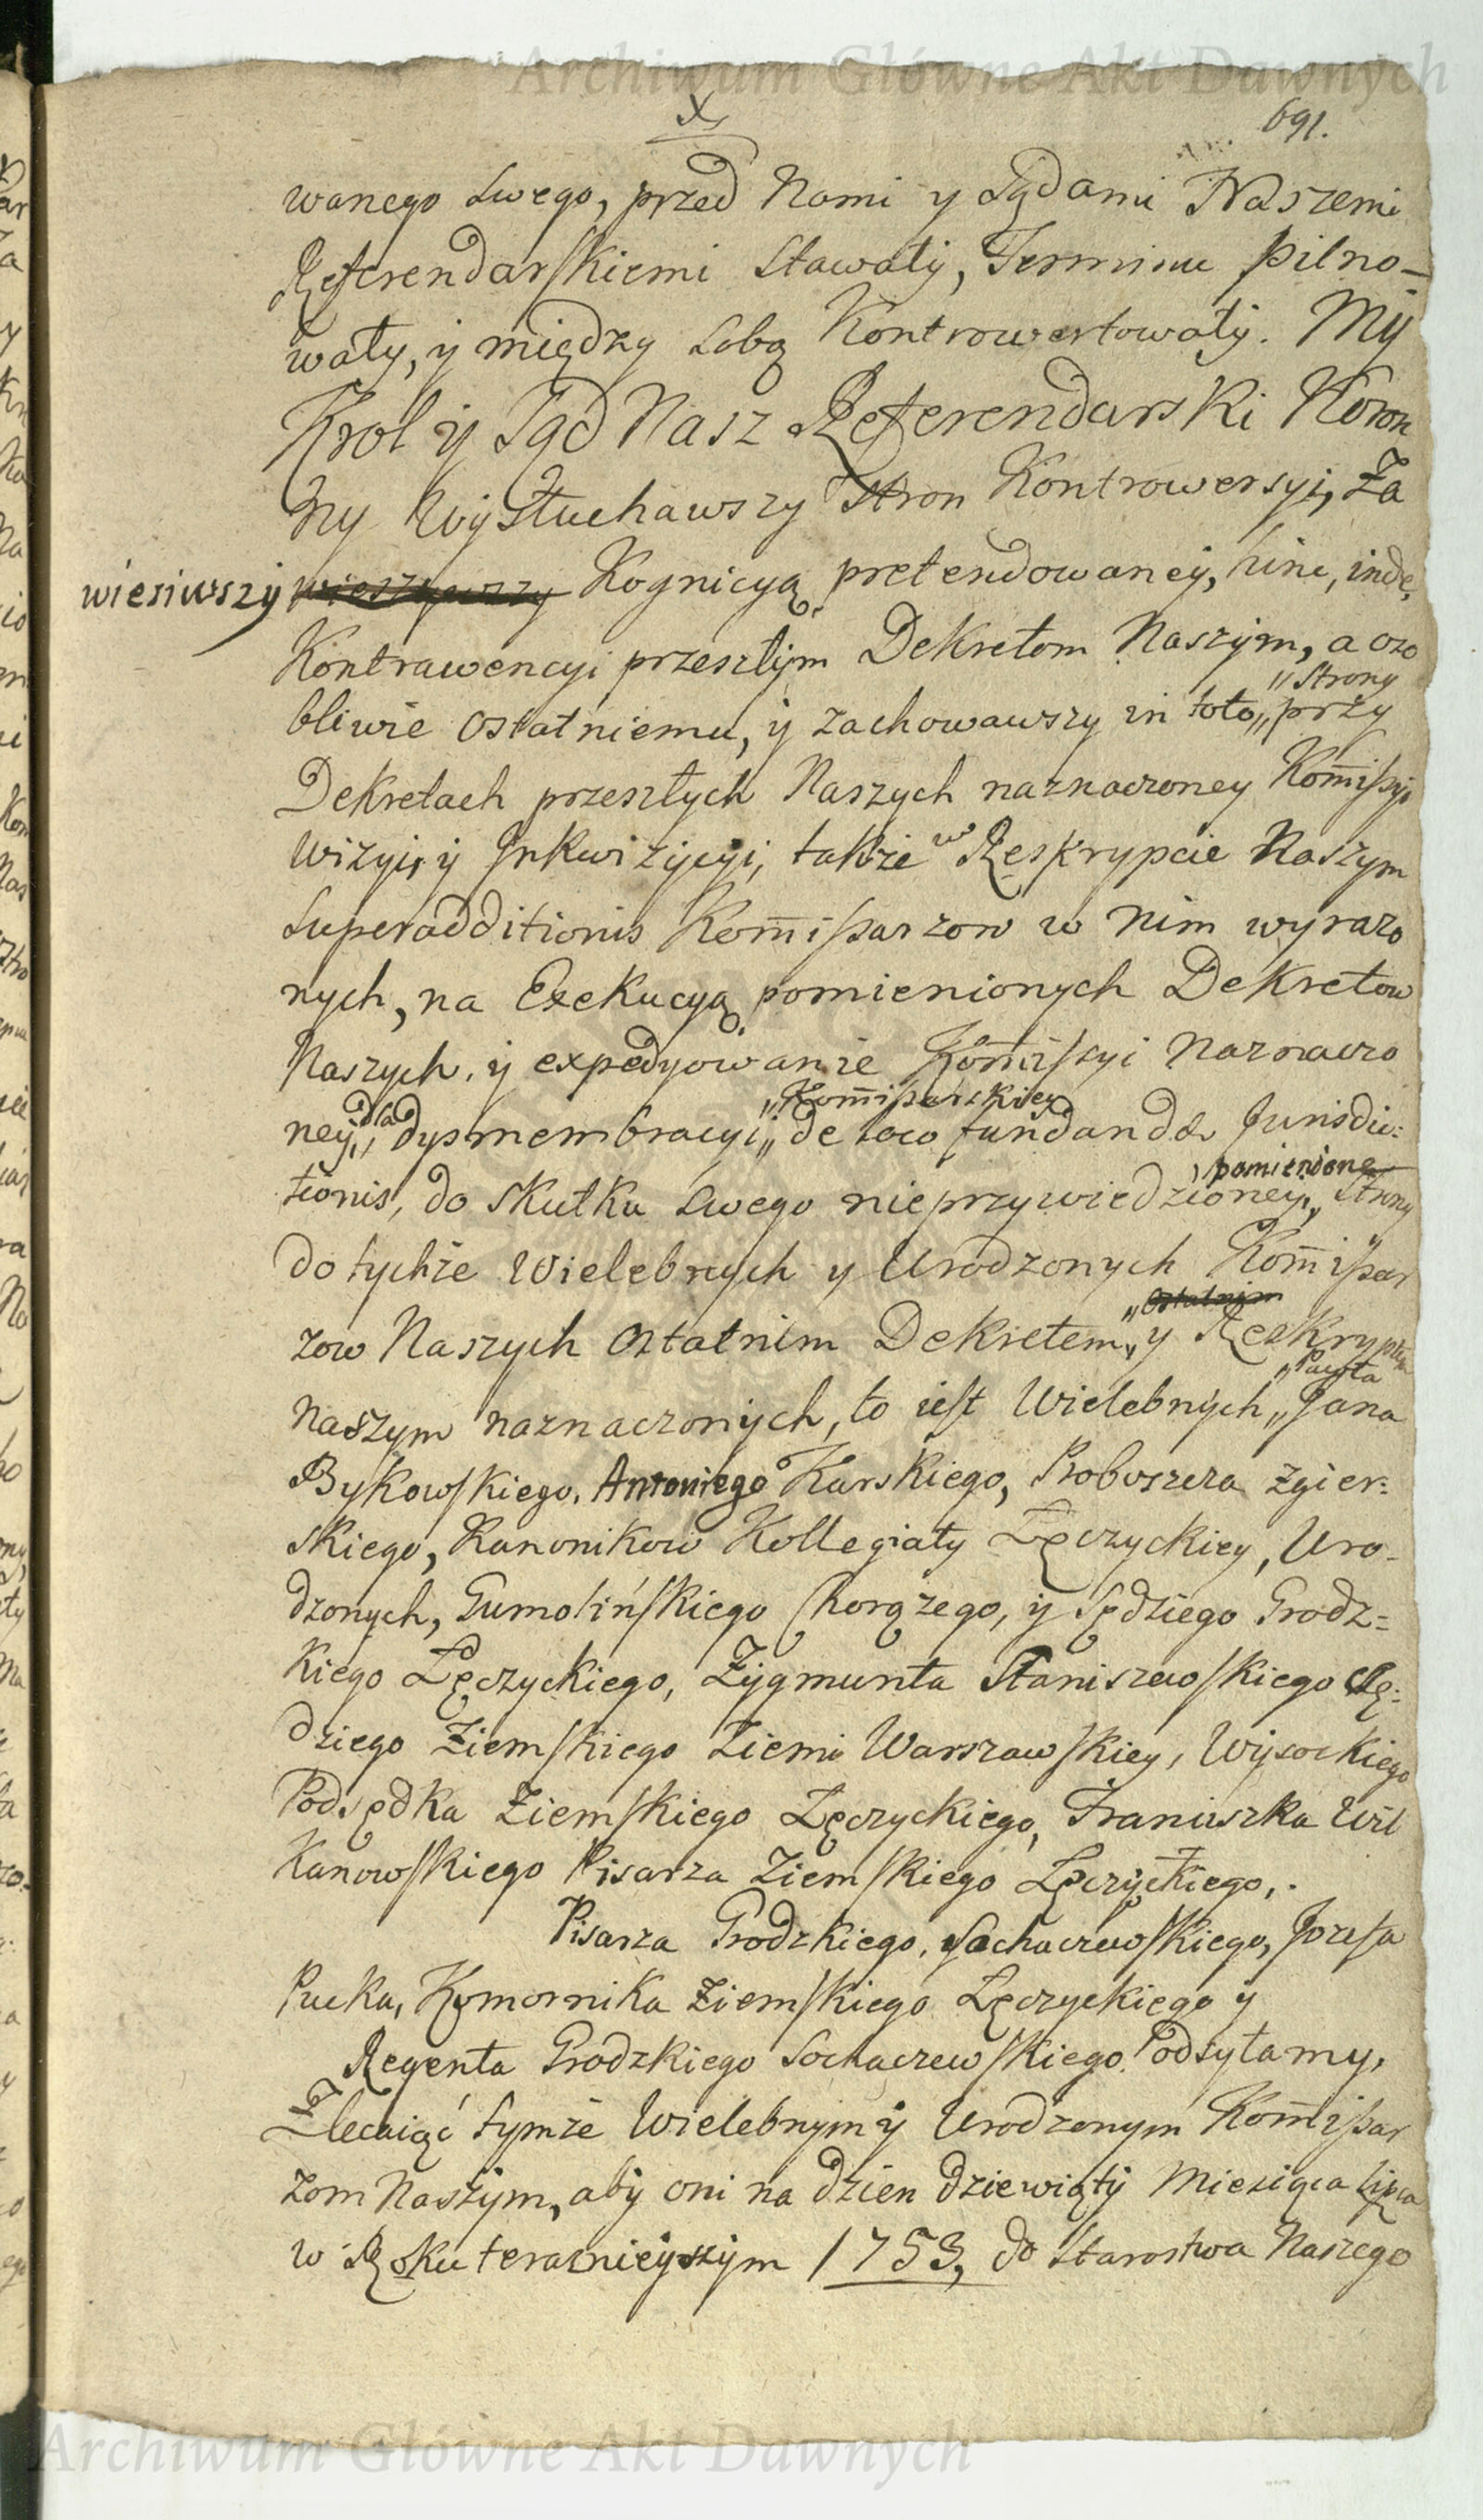 Archiwum Główne Akt Dawnych
X
691.
wanego swego, przed Nami y Sądami Naszemi
Referendarskiemi stawały, Terminu pilno-
wały, y między sobą Kontrowertowały. My
Krol y Sąd Nasz Referendarski Koron
ny Wysłuchawszy Stron Kontrowersyi, Za
wiesiwszy wieszywszy Kognicyą pretendowaney, hinc, inde,
Kontrawencyi przeszłym Dekretom Naszym, a ozo
"Strony
bliwie ostatniemu, y zachowawszy in toto,, przy
Dekretach przeszłych Naszych naznaczoney Kom̄issyi
Wizyi, y Inkwizycyi, także w Reskrypcie Naszym
Superadditionis Kom̄issarzow w nim wyrazo
nych, na Exekucyą pomienionych Dekretow
Naszych, y expedyowanie Kom̄issyi Naznaczo
"Kom̄issarskiey
ney, dla dysmembracyi,, de loco fundandae Jurisdic=
pomienione
tionis, do skutku swego nieprzywiedzioney,, Strony
do tychże Wielebnych y Urodzonych Kom̄issar
"ostatnim
zow Naszych Ostatnim Dekretem,, y Reskryptem
"Pawła
naszym naznaczonych, to iest Wielebnych,, Jana
Bykowskiego, Antoniego Karskiego, Proboszcza Zgier=
skiego, Kanonikow Kollegiaty Łęczyckiey, Uro-
dzonych, Gumolińskiego Chorążego, y Sędziego Grodz=
kiego Łęczyckiego, Zygmunta Staniszewskiego Sę=
dziego Ziemskiego Ziemi Warszawskiey, Wysockiego
Podsędka Ziemskiego Łęczyckiego, Franiszka Wil
kanowskiego Pisarza Ziemskiego Łęczyckiego,.
Pisarza Grodzkiego, Sochaczewskiego, Jozefa
Pucka, Komornika Ziemskiego Łęczyckiego y
Regenta Grodzkiego Sochaczewskiego Podsyłamy,
Zlecaiąć tymże Wielebnym y Urodzonym Kom̄issar
zom Naszym, aby oni na dzien dziewiąty Miesiąca Lipca
w Roku teraznieyszym 1753, do Starostwa Naszego
Archiwum Główne Akt Dawnych